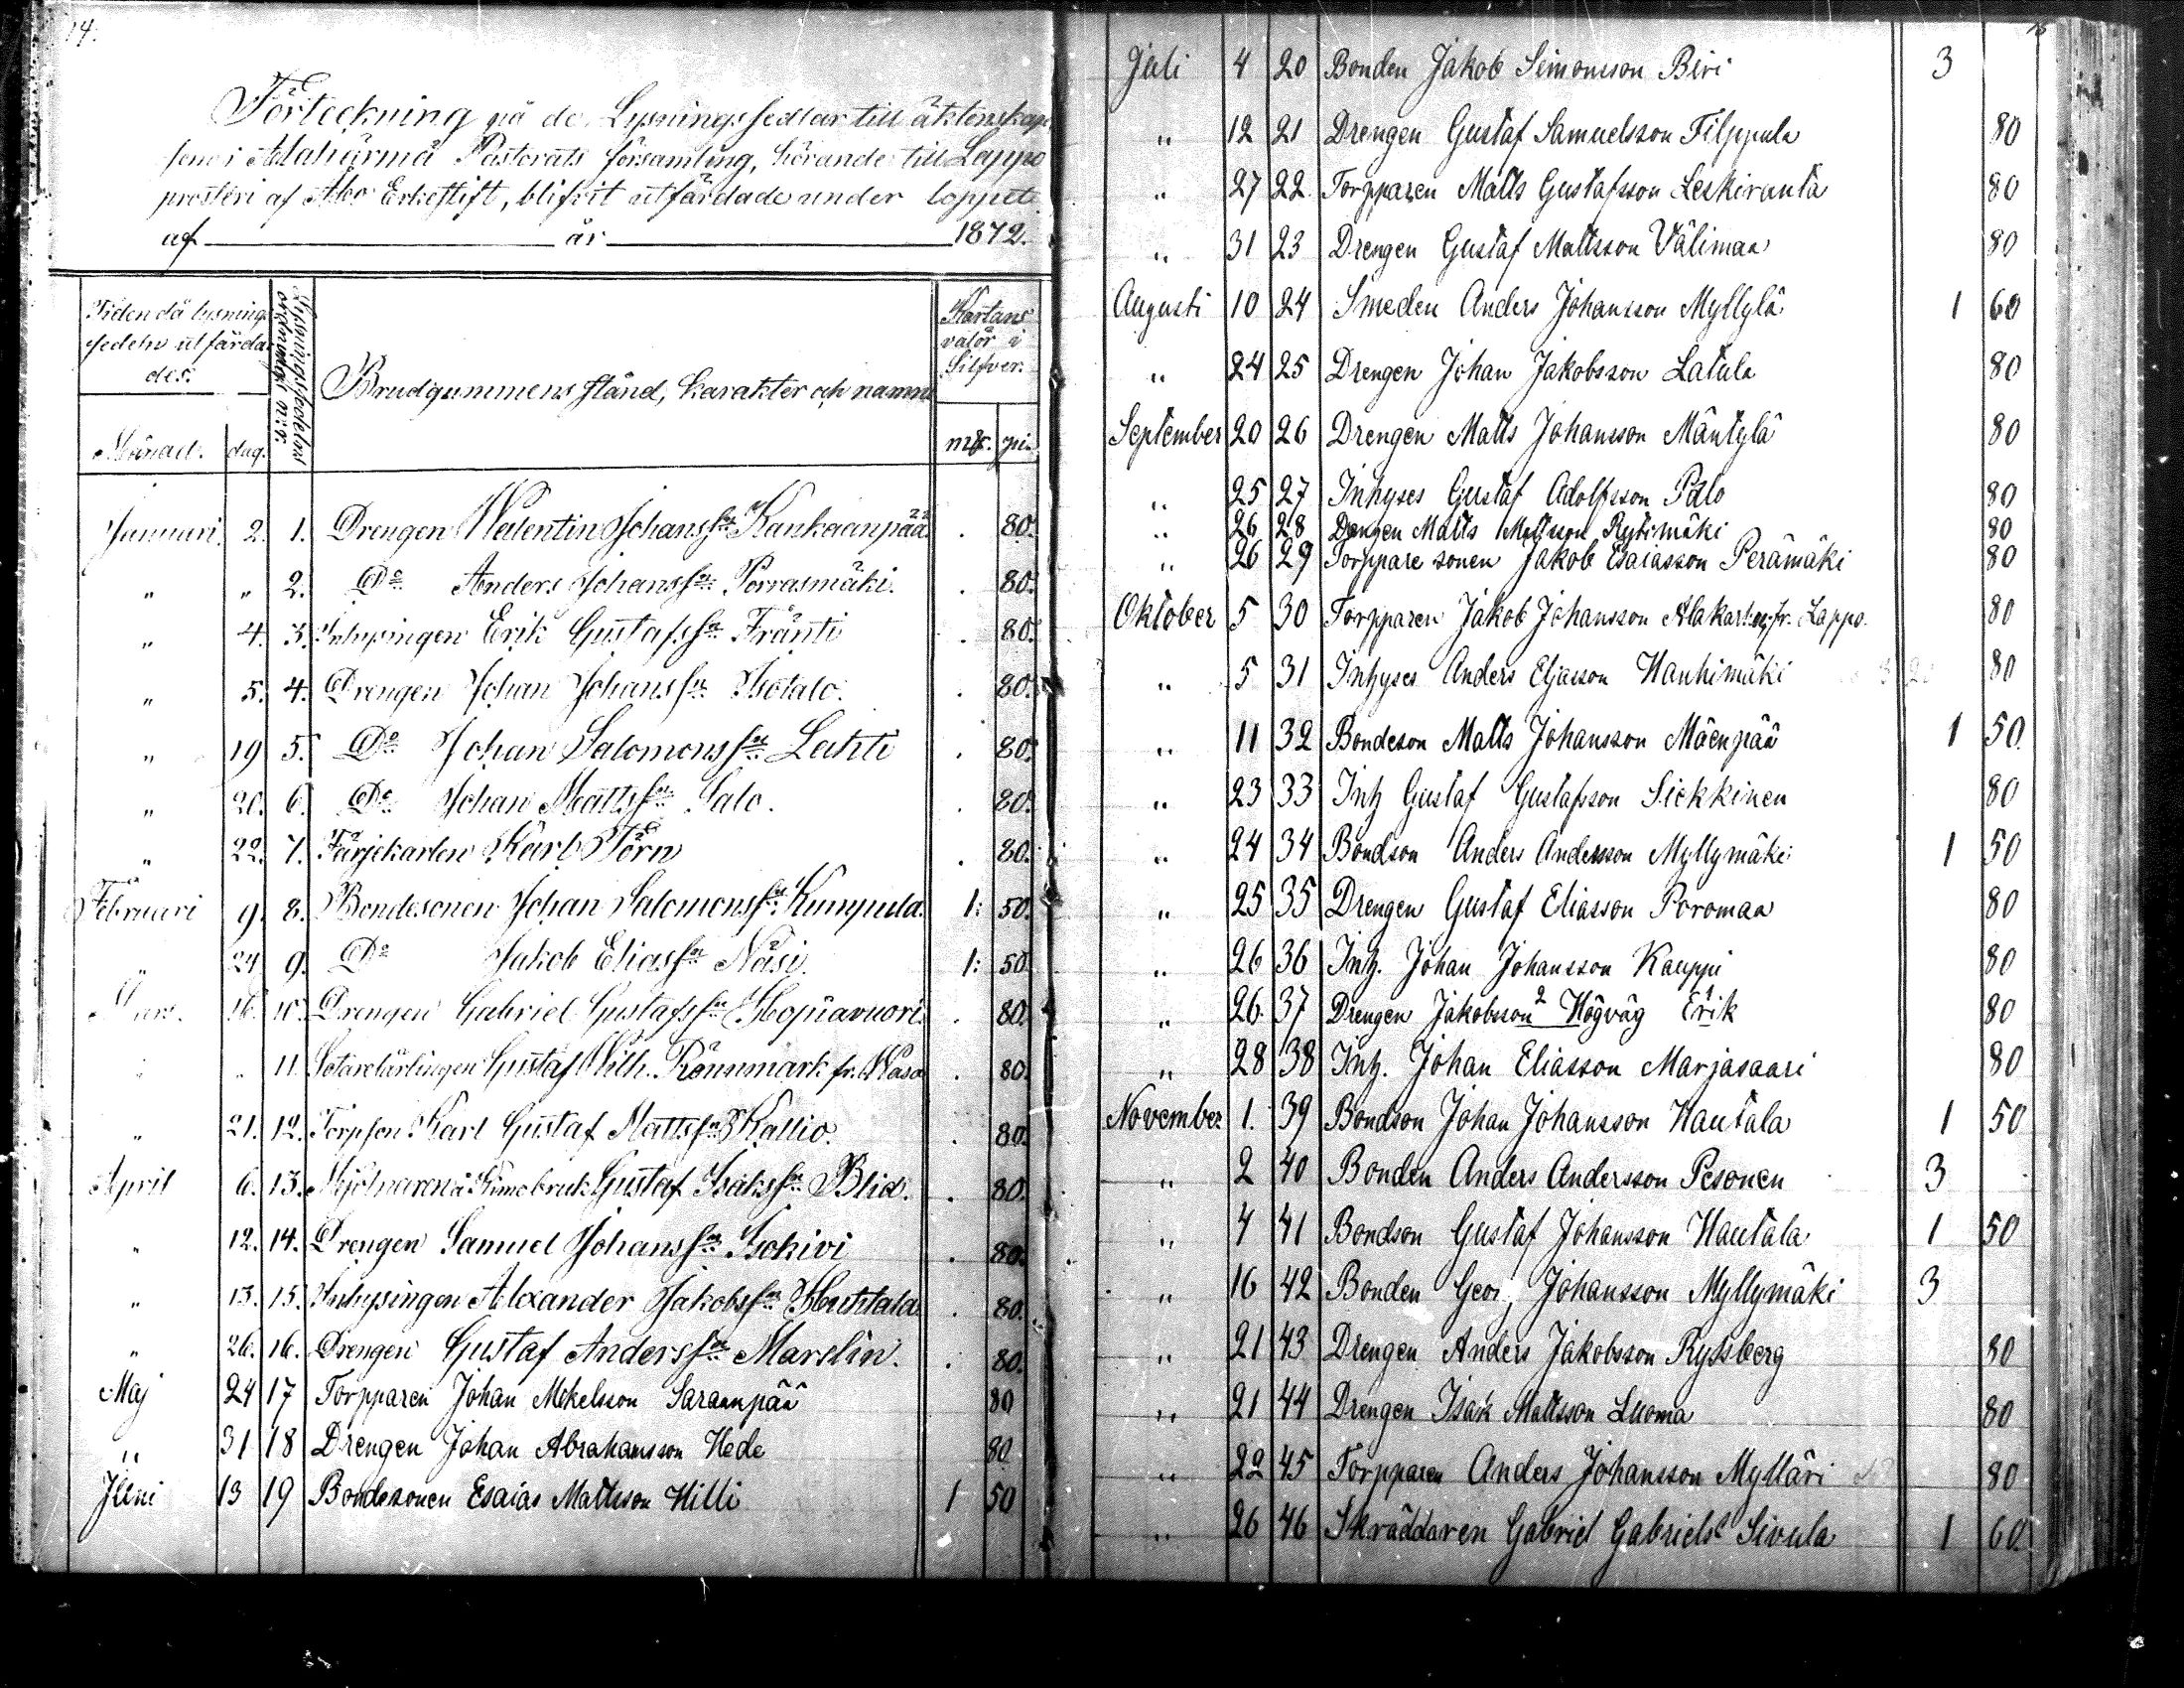 14.
Förteckning på de Lysningssedlar till äktenskap,
som i Alahärmä Pastorats församling, hörande till Lappo
prosteri af Åbo Erkestift, blifvit utfärdade under loppet
af år 1872.
Tiden då lysnings
sedeln utfärda
des.
Månad. dag.
Lysningssedelns
ordnings n:r.
Brudgummens stånd, karakter och namn
Kartans
valör i
Silfver.
mk. pi.
Januari. 2. 1. Drengen Walentin Johanss:n Kankaanpää . 80.
" " 2. D:o Anders Johanss:n Porrasmäki. . 80.
" 4. 3. Inhysingen Erik Gustafss:n Fränti . 80.
" 5. 4. Drengen Johan Johanss:n Isotalo. . 80.
" 19 5. D:o Johan Salomonss:n Lahti . 80.
" 20. 6. D:o Johan Mattss:n Salo. . 80.
" 22. 7. Färjekarlen Karl Törn . 80.
Februari 9. 8. Bondesonen Johan Salomonss:n Kumpula. 1: 50.
" 24 9. D:o Jakob Eliass:n Näsi. 1: 50.
Mars. 16. 10. Drengen Gabriel Gustafss:n Hopiavuori. . 80.
" " 11. Gustaf Wilh. Rönnmark fr. Wasa . 80.
" 21. 12. Torpson Karl Gustaf Mattss:n Kallio. . 80.
April 6. 13. Mjölnaren å Kimo bruk Gustaf Isakss:n Blid. . 80.
" 12. 14. Drengen Samuel Johanss:n Isokivi . 80.
" 13. 15. Inhysingen Alexander Jakobss:n Huhtala . 80.
" 26. 16. Drengen Gustaf Anderss:n Marslin. . 80.
Maj 24 17 Torpparen Johan Mikelsson Saraanpää 80
" 31 18 Drengen Johan Abrahamsson Hede 80
Juni 13 19 Bondesonen Esaias Mattsson Hilli 1 50
15
Juli 4 20 Bonden Jakob Simonsson Biri 3
" 12 21 Drengen Gustaf Samuelsson Filppula 80
" 27 22 Torpparen Matts Gustafsson Leskiranta 80
" 31 23 Drengen Gustaf Mattsson Välimaa 80
Augusti 10 24 Smeden Anders Johansson Myllylä 1 60
" 24 25 Drengen Johan Jakobsson Latula 80
September 20 26 Drengen Matts Johansson Mäntylä 80
" 25 27 Inhyses Gustaf Adolfsson Palo 80
" 26 28 Drengen Matts Mattsson Rytimäki 80
" 26 29 Torppare sonen Jakob Esaiasson Perämäki 80
Oktober 5 30 Torpparen Jakob Johansson fr. Lappo. 80
" 5 31 Inhyses Anders Eljasson Hanhimäki 80
" 11 32 Bondeson Matts Johansson Mäenpää 1 50
" 23 33 Inh Gustaf Gustafsson Siekkinen 80
" 24 34 Bondson Anders Andersson Myllymäki 1 50
" 25 35 Drengen Gustaf Eliasson Poromaa 80
" 26 36 Inh. Johan Johansson Kauppi 80
" 26. 37 Drengen Jakobsson 2 Högväg Erik 1 80
" 28 38 Inh. Johan Eliasson Marjasaari 80
November 1. 39 Bondson Johan Johansson Hautala 1 50
" 2 40 Bonden Anders Andersson Pesonen 3 .
" 4 41 Bondson Gustaf Johansson Hautala 1 50
" 16 42 Bonden Georg Johansson Myllymäki 3
" 21 43 Drengen Anders Jakobsson Rydsberg 80
" 21 44 Drengen Isak Mattsson Luoma 80
" 22 45 Torpparen Anders Johansson Mylläri 80
" 26 46 Skräddaren Gabriel Gabriels Sivula 1 60.